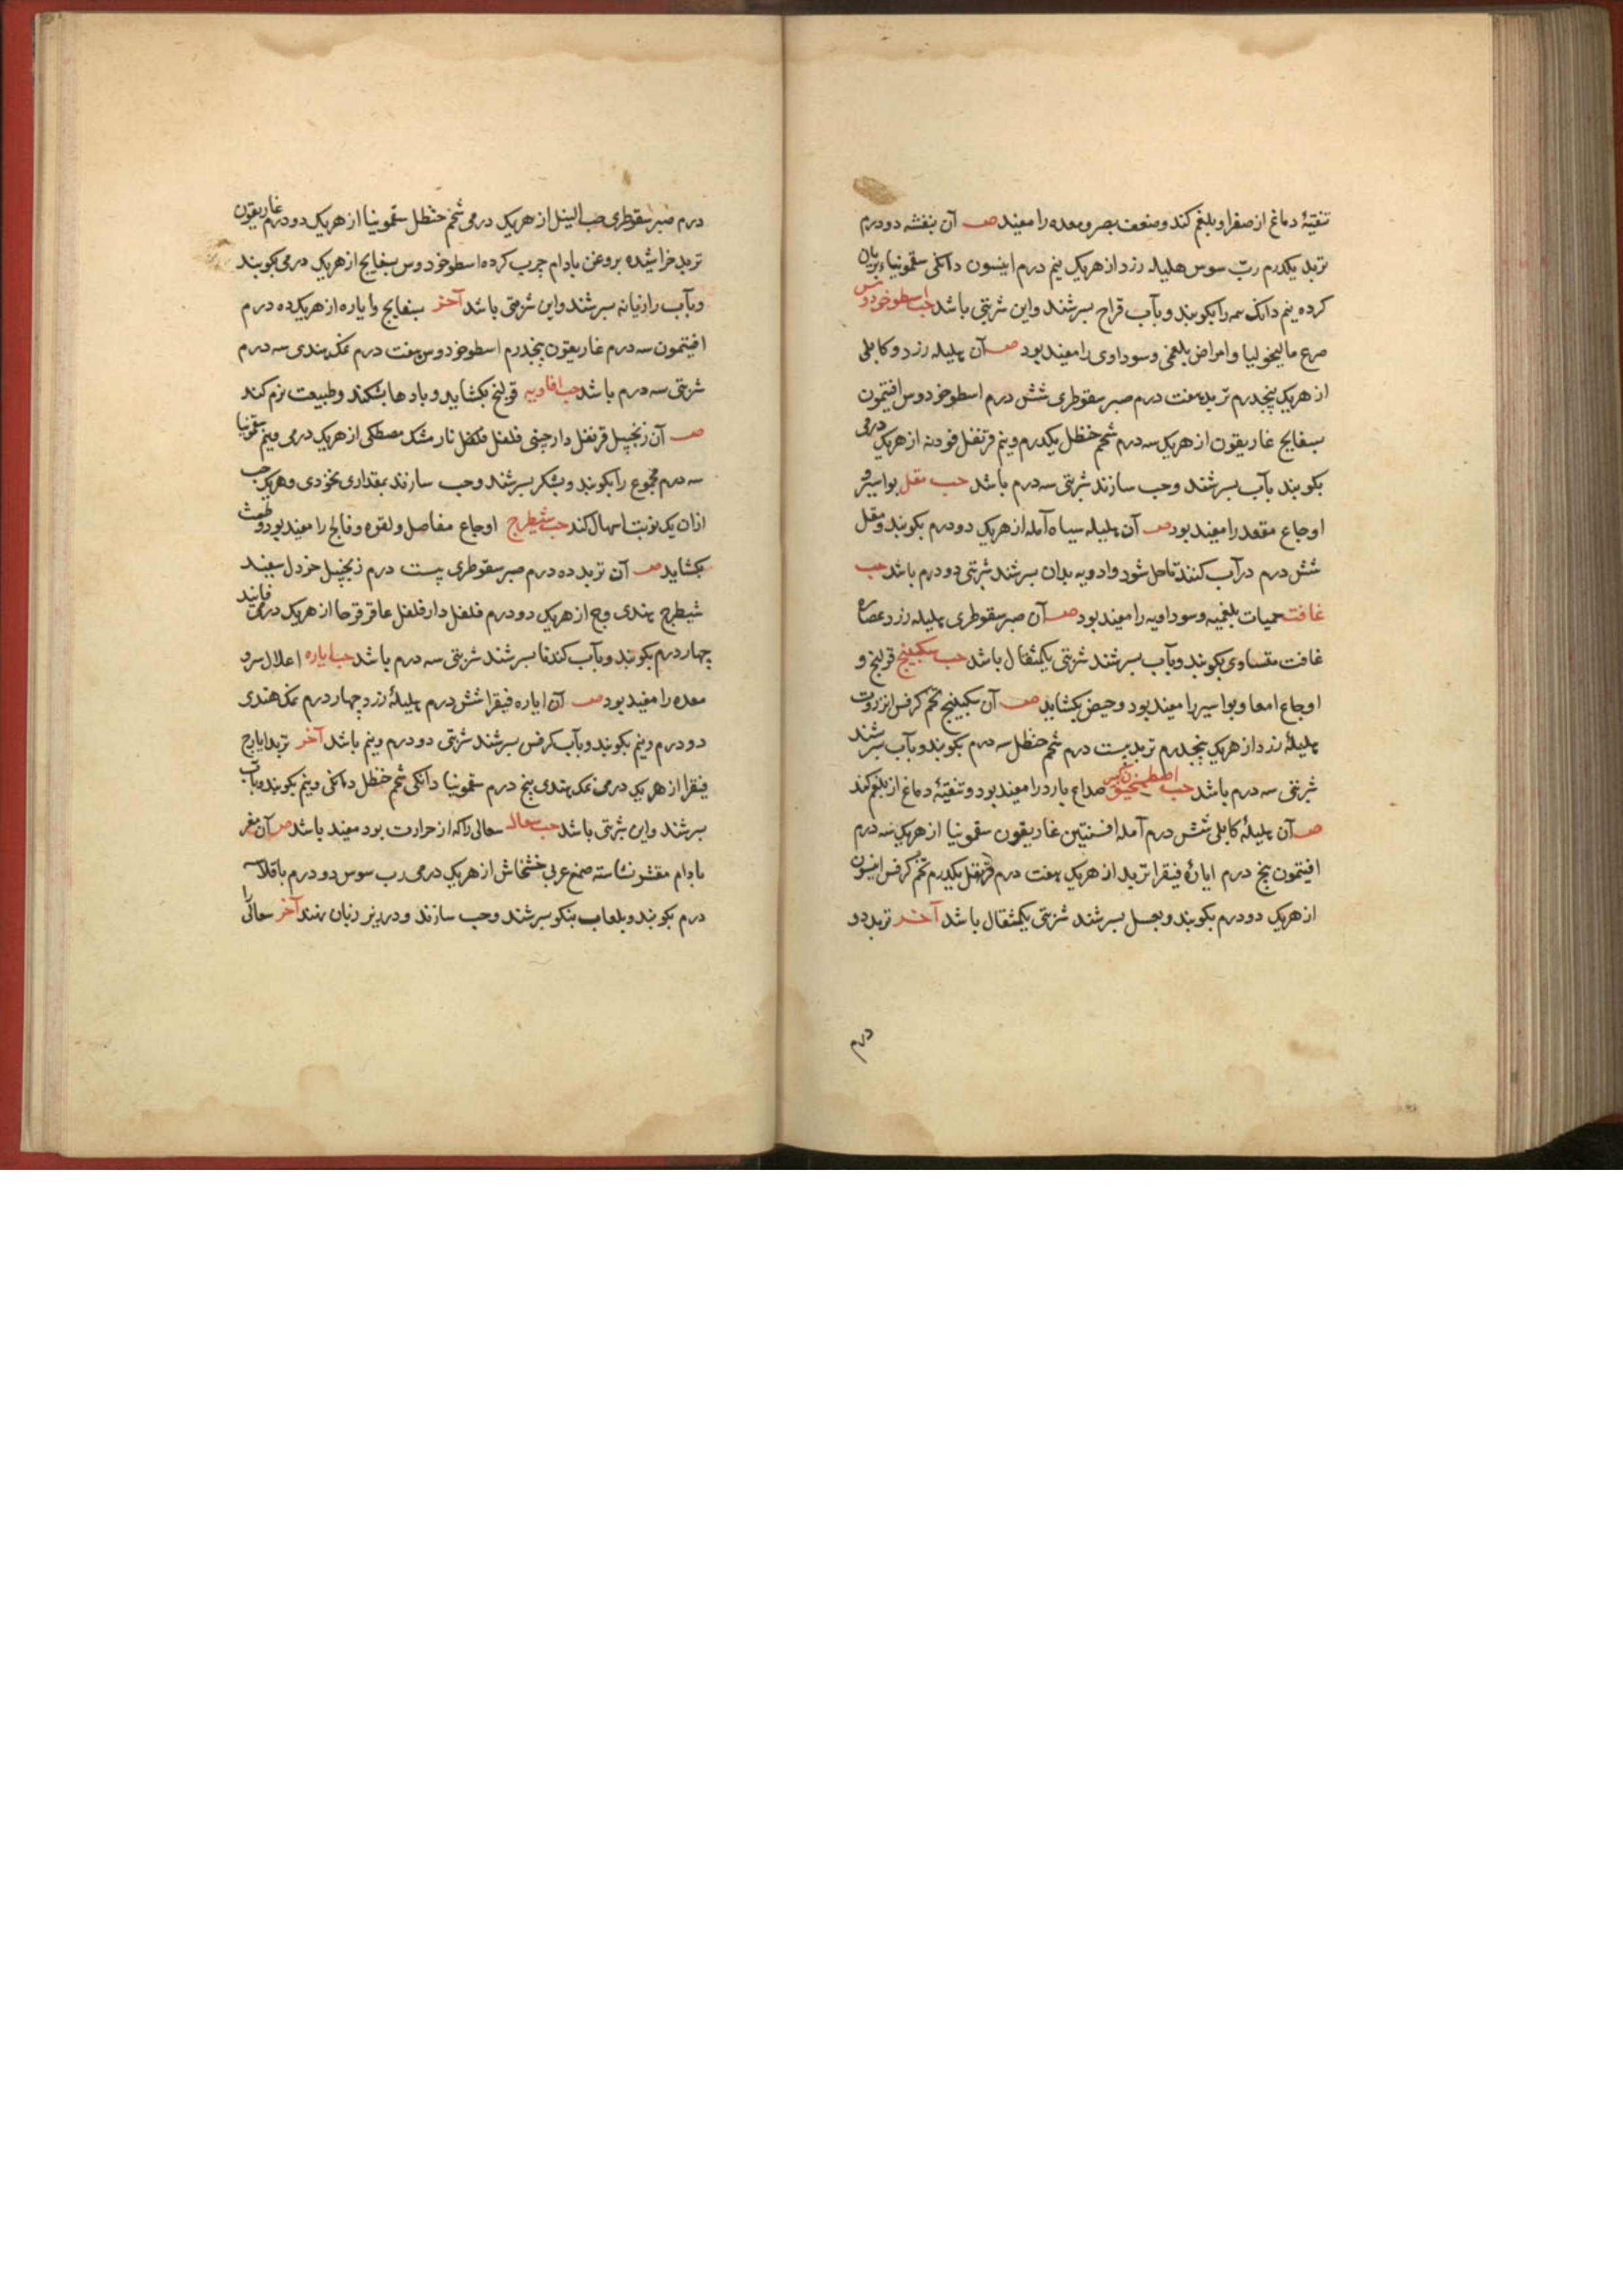 تنقیهٔ دماغ از صفرا و بلغم کند و ضعف بصر و معده را مفید صـ آن بنفشه دو درم
تربد یکدرم ربّ سوس هلیله زرد از هریک نیم درم انیسون دانکی سقمونیاء بریان
کرده نیم دانک همه را بکوبند و بآب قراح بسرشند و این شربتی باشد حب اسطوخودوس
صرع مالیخولیا و امراض بلغمی و سوداوی را مفید بود صـ آن هلیله زرد و کابلی
از هریک پنجدرم تربد هفت درم صبر سقوطری شش درم اسطوخودوس افتیمون
بسفایج غاریقون از هریک سه درم شحم حنظل یکدرم و نیم قرنفل فودنه از هریک درمی
بکوبند بآب بسرشند و حب سازند شربتی سه درم باشد حب مقل بواسیر و
اوجاع مقعد را مفید بود صـ آن هلیله سیاه آمله از هریک دو درم بکوبند و مقل
شش درم در آب کنند تا حل شود و ادویه بدان بسرشند شربتی دو درم باشد حب
غافت حمیات بلغمیه و سوداویه را مفید بود صـ آن صبر سقوطری هلیله زرد عصاره
غافت متساوی بکوبند و بآب بسرشند شربتی یکمثقال باشد حب سکبینج قولنج و
اوجاع امعا و بواسیر را مفید بود و حیض بکشاید صـ آن سکبینج تخم کرفس انزروت
هلیلهٔ زرد از هریک پنجدرم تربد بیست درم شحم حنظل سه درم بکوبند و بآب بسرشند
شربتی سه درم باشد حب اصطمخیقون صداع بارد را مفید بود و تنقیهٔ دماغ از بلغم کند
صـ آن هلیلهٔ کابلی شش درم آمله افسنتین غاریقون سقمونیا از هریک سه درم
افتیمون پنج درم ایارهٔ فیقرا تربد از هریک هفت درم قرنفل یکدرم تخم کرفس انیسون
از هریک دو درم بکوبند و بعسل بسرشند شربتی یکمثقال باشد آخر تربد دو
درم
درم صبر سقوطری حب النیل از هریک درمی شحم حنظل سقمونیا از هریک دو درم غاریقون
تربد خراشیده بروغن بادام چرب کرده اسطوخودوس بسفایج از هریک درمی بکوبند
و بآب رازیانه بسرشند و این شربتی باشد آخر بسفایج و ایاره از هریک ده درم
افتیمون سه درم غاریقون پنجدرم اسطوخودوس هفت درم نمک هندی سه درم
شربتی سه درم باشد حب افاویه قولنج بکشاید و بادها بشکند و طبیعت نرم کند
صـ آن زنجبیل قرنفل دارچینی فلفل فلفل نارمشک مصطکی از هریک درمی و نیم سقمونیا
سه درم مجموع را بکوبند و بشکر بسرشند و حب سازند بمقداری نخودی و هریک حب
ازان یک نوبت اسهال کند حب شیطرج اوجاع مفاصل و لقوه و فالج را مفید بود و طمث
بکشاید صـ آن تربد ده درم صبر سقوطری بیست درم زنجبیل خردل سفید
شیطرج هندی وج از هریک دو درم فلفل دارفلفل عاقرقرحا از هریک درمی فانید
چهار درم بکوبند و بآب کندنا بسرشند شربتی سه درم باشد حب ایاره اعلال سر و
معده را مفید بود صـ آن ایاره فیقرا شش درم هلیلهٔ زرد چهار درم نمک هندی
دو درم و نیم بکوبند و بآب کرفس بسرشند شربتی دو درم و نیم باشد آخر تربد ایارج
فیقرا از هریک درمی نمک هندی پنج درم سقمونیا دانکی شحم حنظل دانکی و نیم بکوبند و بآب
بسرشند و این شربتی باشد حب سعال سعالی را که از حرارت بود مفید باشد صـ آن مغز
بادام مقشر نشاسته صمغ عربی خشخاش از هریک درمی رب سوس دو درم باقلا سه
درم بکوبند و بلعاب بنکو بسرشند و حب سازند و در زیر زبان نهند آخر سعالی را